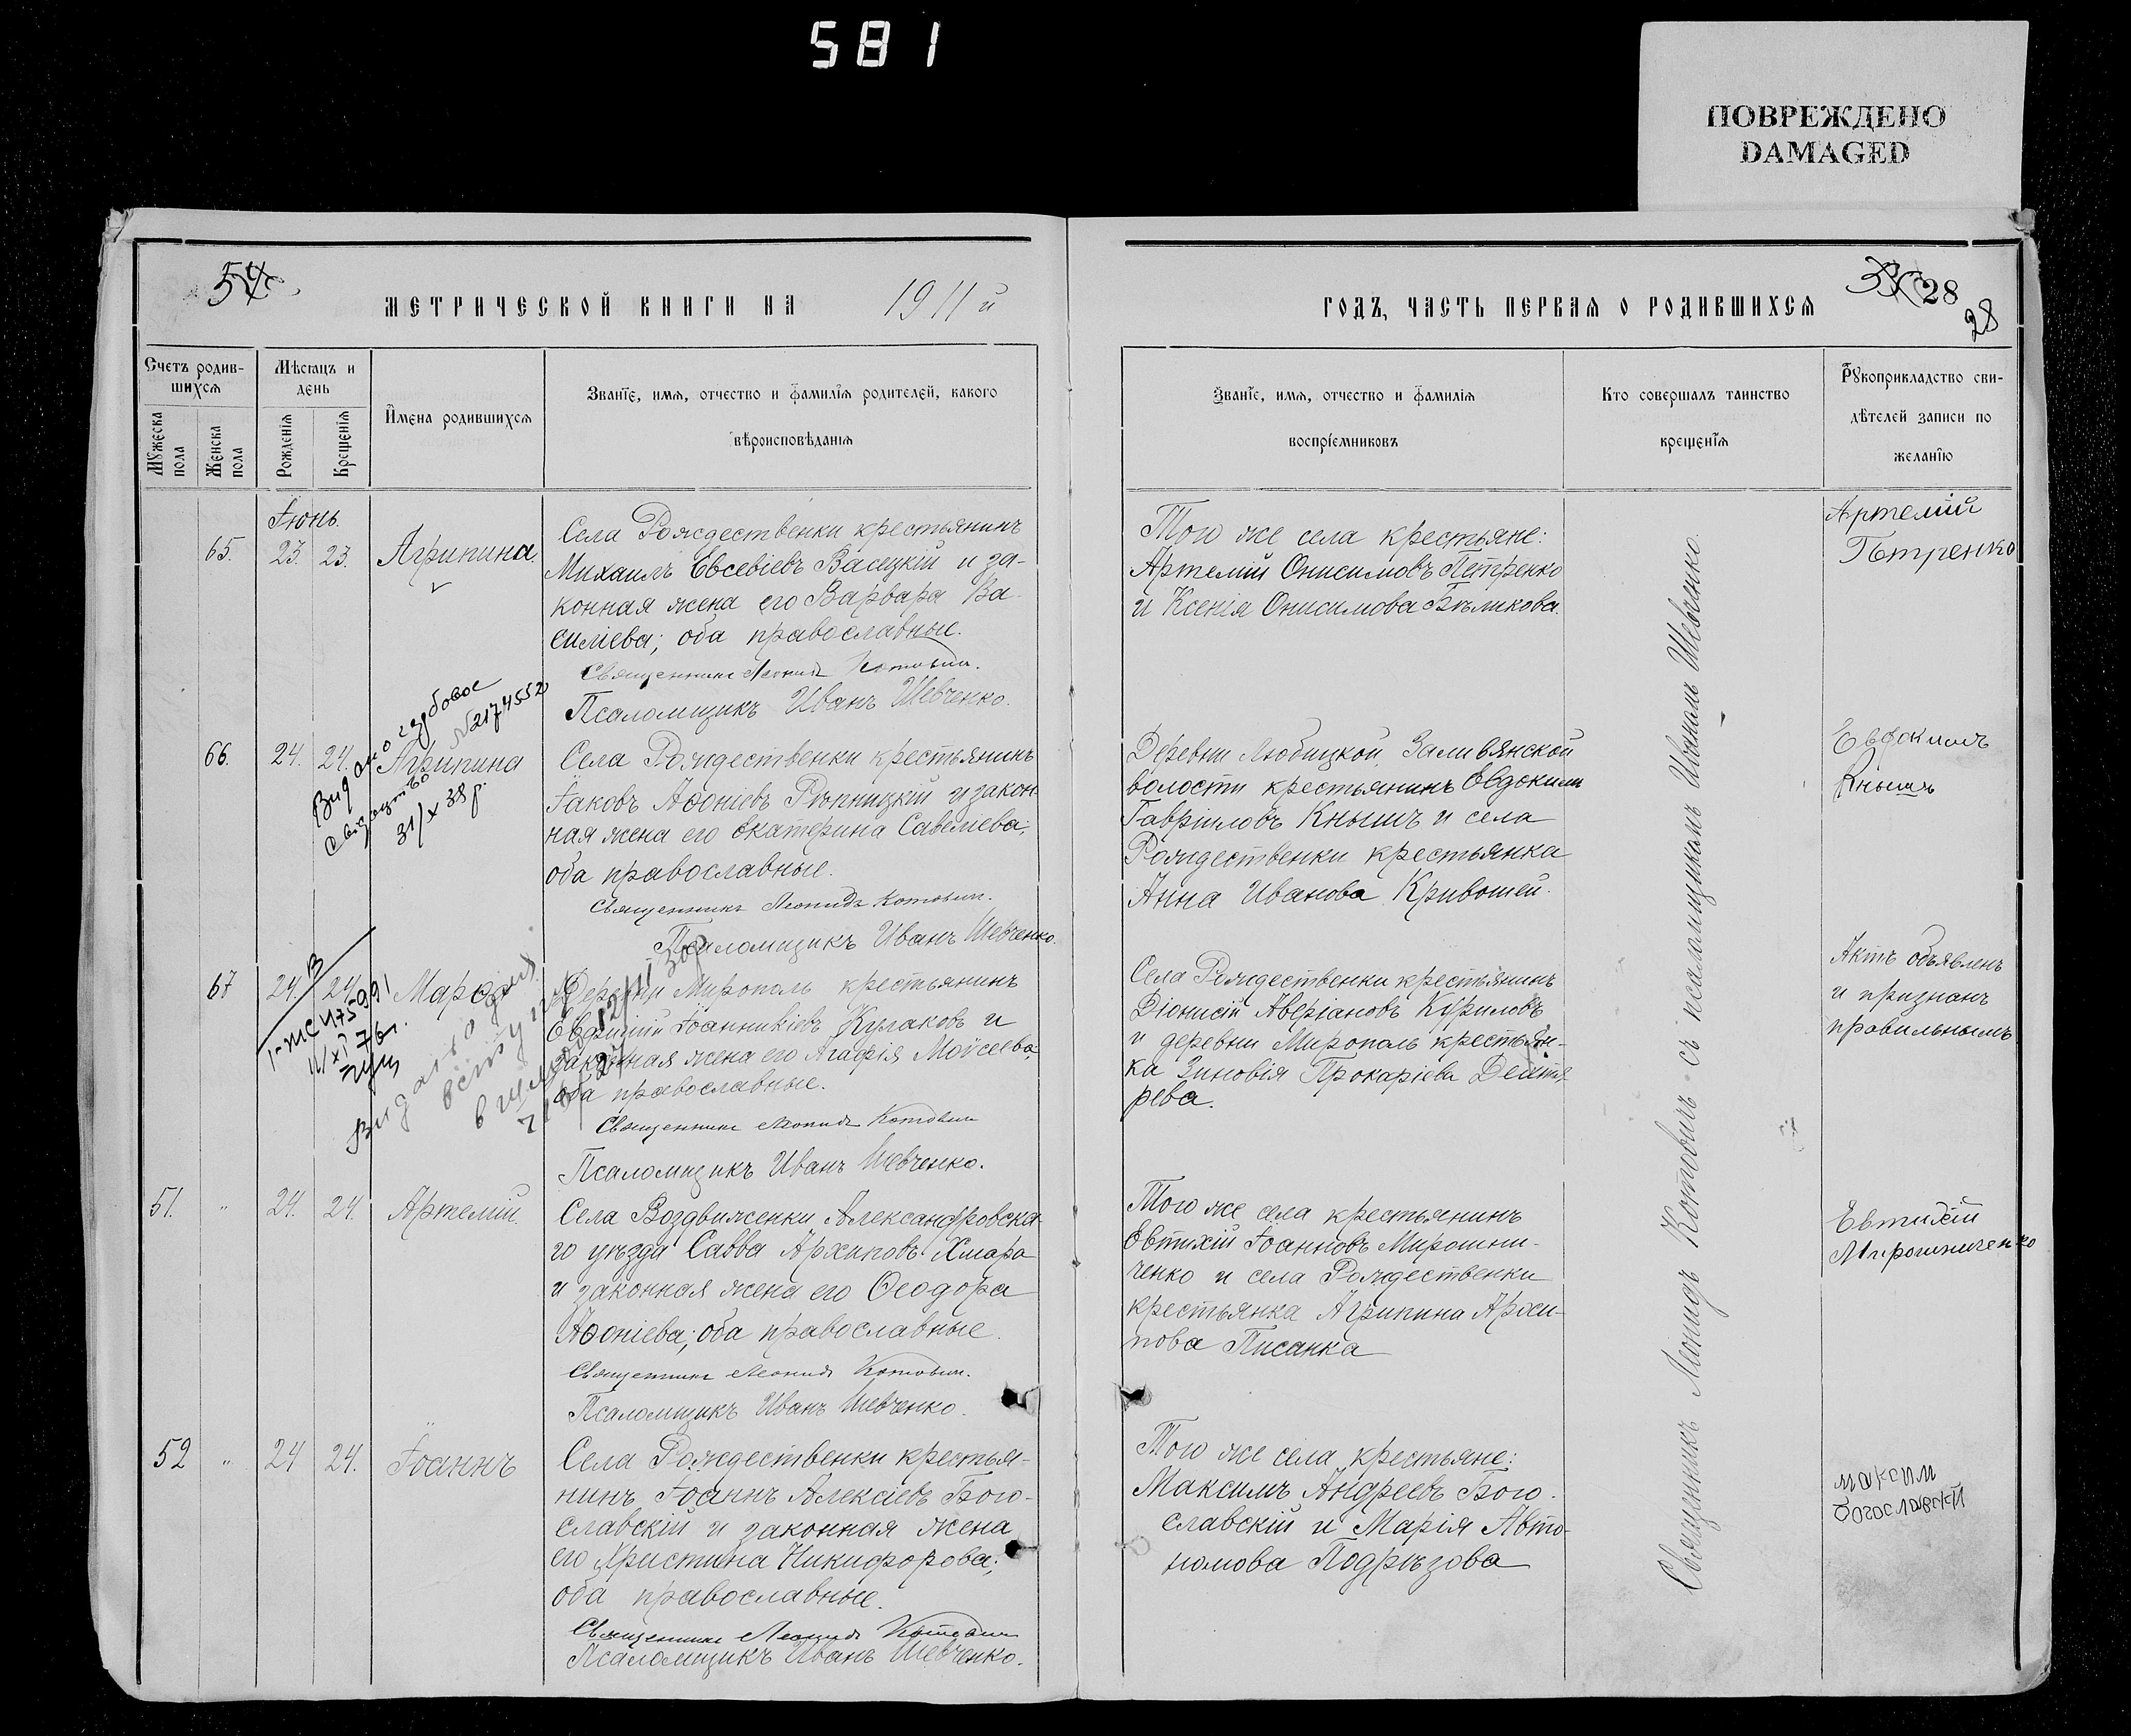 581
ПОВРЕЖДЕНО
DAMAGED
54
МЕТРИЧЕСКОЙ КНИГИ НА 1911 й
Счетъ родив-
шихся
Мужеска пола
Женска пола
Мѣсяцъ и
день
Рожденія
Крещенія
Имена родившихся
Званіе, имя, отчество и фамилія родителей, какого
вѣроисповѣданія
Іюнь.
65. 23. 23. Агрипина.
Села Рождественки крестьянинъ
Михаилъ Евсевіевъ Васецкій и за-
конная жена его Варвара Ва-
силіева; оба православные.
Священникъ Леонидъ Котовичъ.
Псаломщикъ Иванъ Шевченко.
66. 24. 24. Агрипина
Видано
свідоцтво
№2174552
31/X 38 р.
Села Рождественки крестьянинъ
Іаковъ Аѳоніевъ Рѣпницкій и закон
ная жена его Екатерина Савеліева;
оба православные.
Священникъ Леонидъ Котовичъ.
Псаломщикъ Иванъ Шевченко.
67 24. 24. Марѳа
Деревни Мирополь крестьянинъ
Евфимій Іоанникіевъ Кулаковъ и
законная жена его Агафія Моѵсеева;
оба православные.
Священникъ Леонидъ Котовичъ
Псаломщикъ Иванъ Шевченко.
51. " 24. 24. Артемій.
Села Воздвиженки Александровска-
го уѣзда Савва Архиповъ Хмара
и законная жена его Ѳеодора
Аѳоніева; оба православные.
Священникъ Леонидъ Котовичъ.
Псаломщикъ Иванъ Шевченко.
52 " 24 24. Іоаннъ
Села Рождественки крестья-
нинъ Іоаннъ Алексіевъ Бого-
славскій и законная жена
его Христина Никифорова;
оба православные.
Священникъ Леонидъ Котовичъ
Псаломщикъ Иванъ Шевченко.
ГОДЪ, ЧАСТЬ ПЕРВАЯ О РОДИВШИХСЯ
28
28
Званіе, имя, отчество и фамилія
воспріемниковъ
Кто совершалъ таинство
крещенія
Рукоприкладство сви-
дѣтелей записи по
желанію
Того же села крестьяне:
Артемій Онисимовъ Петренко
и Ксенія Онисимова Бѣликова.
Артемій
Петренко
Деревни Любицкой, Заливянской
волости крестьянинъ Евдокимъ
Гавріиловъ Кнышъ и села
Рождественки крестьянка
Анна Иванова Кривошей.
Евдокимъ
Кнышъ
Села Рождественки крестьянинъ
Діонисій Аверіановъ Куриловъ
и деревни Мирополь крестьян-
ка Зиновія Прокаріева Дегтя-
рева.
Актъ объявленъ
и признанъ
правильнымъ
Того же села крестьянинъ
Евтихій Іоанновъ Мирошни-
ченко и села Рождественки
крестьянка Агрипина Архи-
пова Писанка
Евтихій
Мирошниченко
Того же села крестьяне:
Максимъ Андреевъ Бого-
славскій и Марія Авто-
номова Подрѣзова
максим
богославскй
Священникъ Леонидъ Котовичъ съ псаломщикомъ Иваномъ Шевченко.